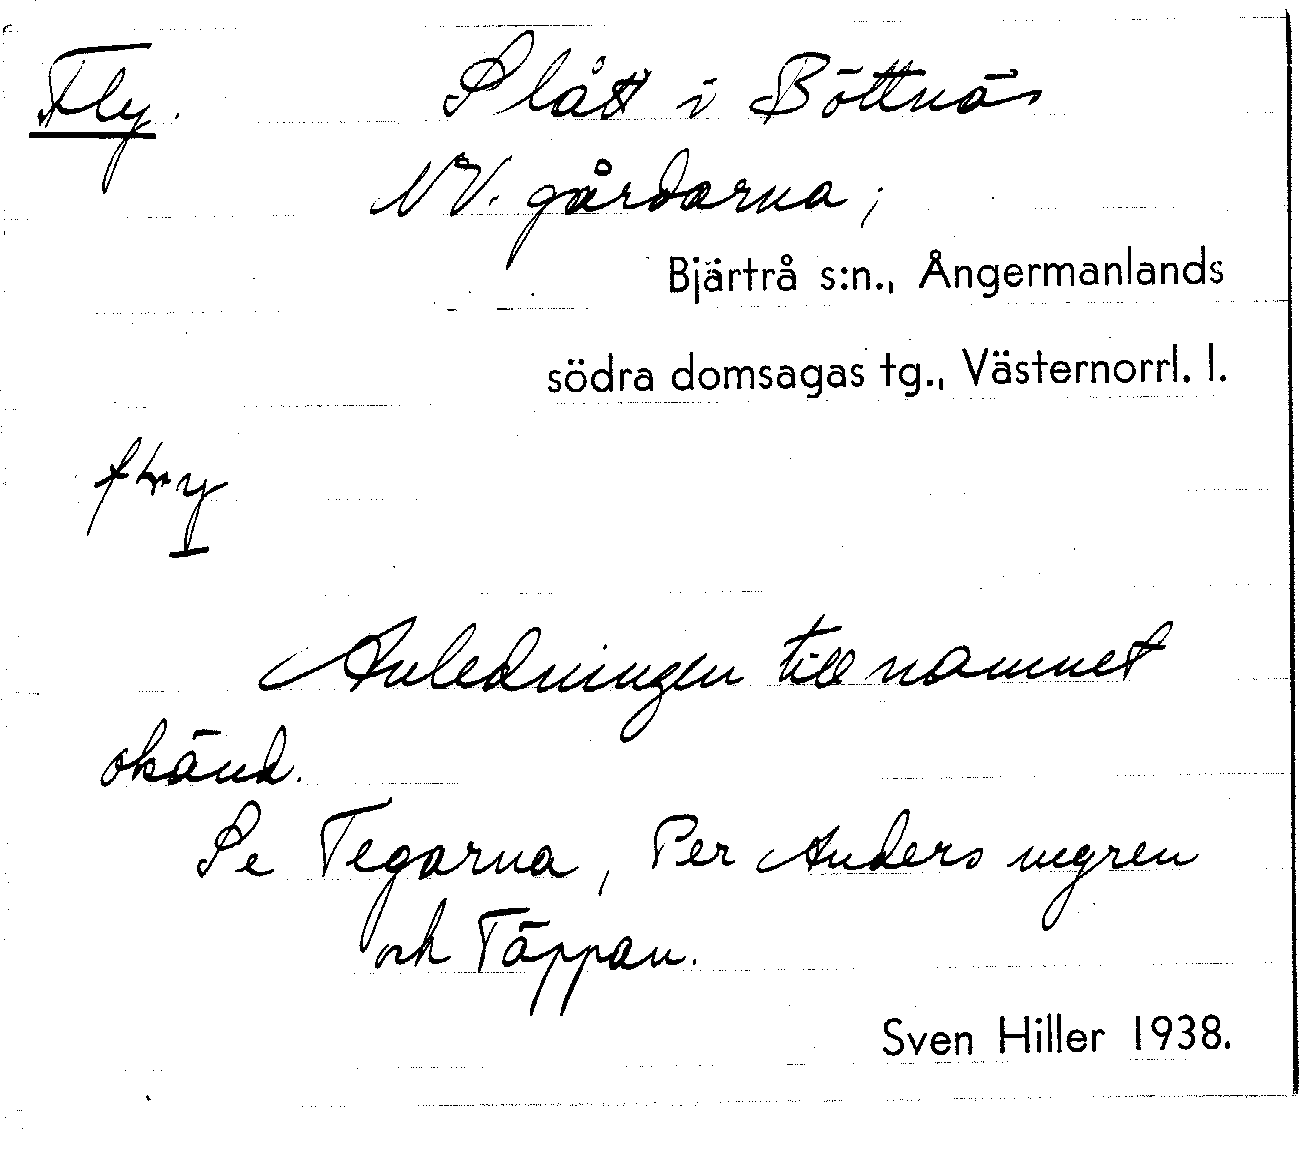 Fly. Slått i Böttnäs
NV. gårdarna;
Bjärtrå s:n., Ångermanlands
södra domsagas tg., Västernorrl. l.
Anledningen till namnet
okänd.
Se Tegarna, Per Anders
och Täppan.
Sven Hiller 1938.